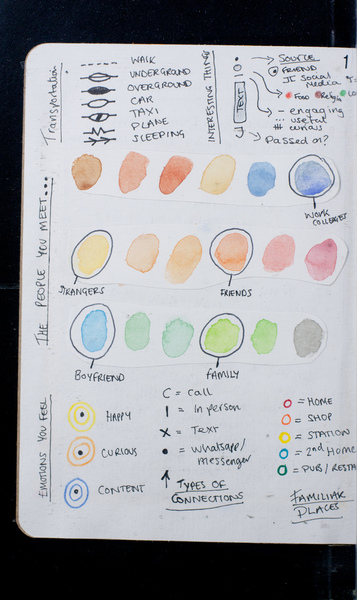 Transportation
WALK
UNDERGROUND
OVERGROUND
CAR
TAXI
PLANE
SLEEPING
INTERESTING THING
TEXT
SOURCE
FRIEND
Social
media
Food
engaging
useful
curious
Passed on?
1
THE PEOPLE YOU MEET...
WORK
STRANGERS
FRIENDS
BOYFRIEND
FAMILY
EMOTIONS YOU FEEL
HAPPY
CURIOUS
CONTENT
C = call
I = In person
X = Text
• = Whatsapp/
messenger
TYPES OF
CONNECTIONS
= HOME
= SHOP
= STATION
= 2nd Home
= PUB/RESTA
FAMILIAR
PLACES